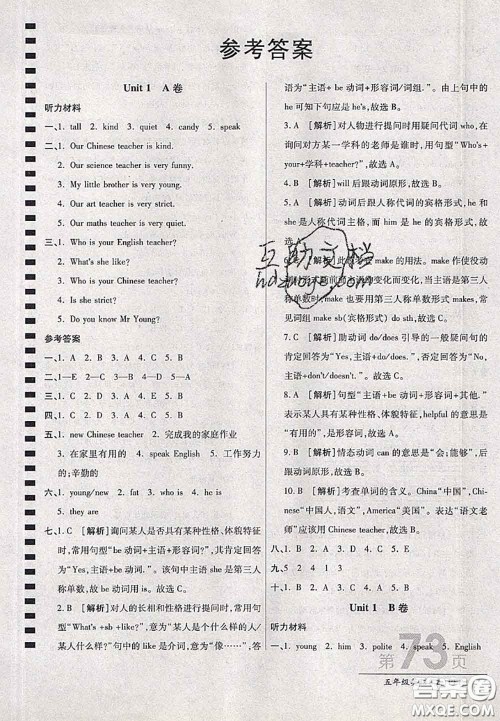 参考答案
Unit 1　A 卷
听力材料
一、1. tall　2. kind　3. quiet　4. candy　5. speak
二、1. Our Chinese teacher is kind.
2. Our science teacher is very funny.
3. My little brother is very young.
4. Our art teacher is very strict.
5. Our maths teacher is very quiet.
三、1. Who is your English teacher?
2. What's she like?
3. Who is your music teacher?
4. Is she strict?
5. Do you know Mr Young?
参考答案
一、1. A　2. B　3. A　4. C　5. B
二、1—E　2—A　3—B　4—C　5—D
三、1. C　2. B　3. A　4. C　5. B
四、1. C　2. A　3. D　4. E　5. B
五、1. new Chinese teacher　2. 完成我的家庭作业
3. 在家里有用的　4. speak English　5. 工作努力
的；辛勤的
六、1. young/new　2. fat　3. he is　4. who is
5. they are
七、1. C　[解析]询问某人是否具有某种性格、体貌特征
时，常用句型“be 动词+主语+形容词?”，其肯定回答
为“Yes, 主语+be 动词”。该句中主语是第三人
称单数，故 be 动词用 is，故选 C。
2. B　[解析]对人的长相和性格进行提问时，常用句
型“What's +sb +like?”，意为“某人是什么样子的/某
人什么样子?”句中的 like 是介词，意为“像”，其答语
语为“主语+ be 动词+形容词/词组.”。由上句中的
he 可知下句应是 he，故选 B。
3. A　[解析]对人物进行提问时用疑问代词 who，在
询问对方某一学科的老师是谁时，用句型“Who's+
your+学科+teacher?”，故选 A。
4. B　[解析] will 后跟动词原形，故选 B。
5. A　[解析]动词后跟人称代词的宾格形式，he
she 是人称代词主格，而 him 是 he 的宾格形式，故
选 A。
6. C　[解析]此题考查 make 的用法。make 作使役动
词时形式随前面主语的变化而变化，当主语是第三
人称单数时，make 用第三人称单数形式 makes，常
见词组 make sb(宾格形式) do sth，故选 C。
7. C　[解析]助动词 do/does 引导的一般疑问句的
肯定回答为“Yes, 主语+do/does.”，否定回答为“No,
主语+don't/doesn't.”。故选 C。
8. A　[解析]句型“主语+be 动词+形容词+其他.”
表示某人具有某种性格、体貌特征，helpful 的意思是
“有用的”，是形容词，故选 A。
9. B　[解析]情态动词 can 的意思是“会；能够”，后
跟动词原形，故选 B。
10. A　[解析]考查单词的含义。China“中国”，Chi-
nese“中国人，语文”，America“美国”。表达“语文老
师”应该用 Chinese teacher，故选 B。
八、1. B　2. A　3. D　4. C　5. E
九、1. F　2. T　3. F　4. T　5. T
十、1. B　2. B　3. A　4. B　5. B
Unit 1　B 卷
听力材料
一、1. young　2. him　3. polite　4. speak　5. English
第73页
五年级
互助文档
hdzuoye.com
答案圈
MXQE.COM